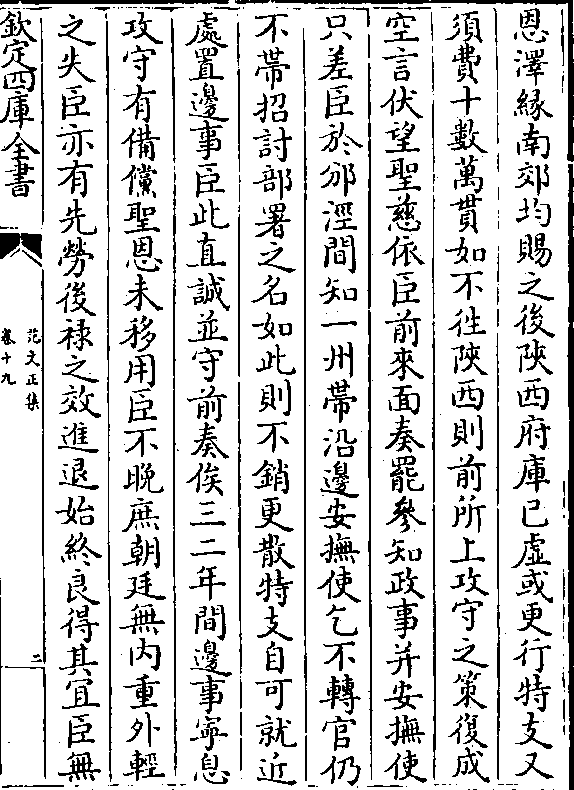 恩澤縁南郊均賜之後陝西府庫已虚或更行特支又
須費十數萬貫如不徃陝西則前所上攻守之策復成
空言伏望聖慈依臣前來面奏罷參知政事并安撫使
只差臣於邠涇間知一州帶沿邊安撫使乞不轉官仍
不帶招討部署之名如此則不銷更散特支自可就近
處置邊事臣此直誠並守前奏俟三二年間邊事寧息
攻守有備儻聖恩未移用臣不晚庶朝廷無内重外輕
之失臣亦有先勞後禄之效進退始終良得其宜臣無
欽定四庫全書
范文正集
卷十九
二